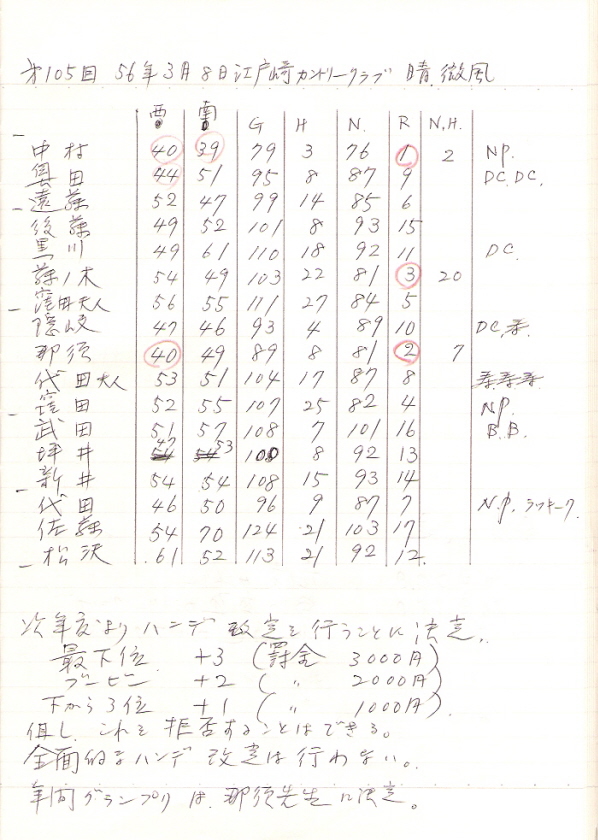 才105回 56年3月8日江戸崎カントリークラブ 晴 微風
西 南 G H N. R N,H.
中村 40 39 79 3 76 1 2 NP.
奥田 44 51 95 8 87 9 DC. DC.
遠藤 52 47 99 14 85 6
後藤 49 52 101 8 93 15
黒川 49 61 110 18 92 11 DC.
藤ノ木 54 49 103 22 81 3 20
窪田夫人 56 55 111 27 84 5
隠岐 47 46 93 4 89 10 DC,
那須 40 49 89 8 81 2 7
代田夫人 53 51 104 17 87 8
窪田 52 55 107 25 82 4 NP.
武田 51 57 108 7 101 16 B.B.
坪井 47 53 100 8 92 13
新井 54 54 108 15 93 14
代田 46 50 96 9 87 7 N.P. ラッキーク.
佐藤 54 70 124 21 103 17
松沢 61 52 113 21 92 12
次年度より ハンデ 改定を行うことに 法定。
最下位 +3 (罰金 3000円)
ブービー +2 ( 〃 2000円)
下から3位 +1 ( 〃 1000円)
但し、これを拒否することはできる。
全面的なハンデ改定は行わない。
年間グランプリは、那須先生に法定。